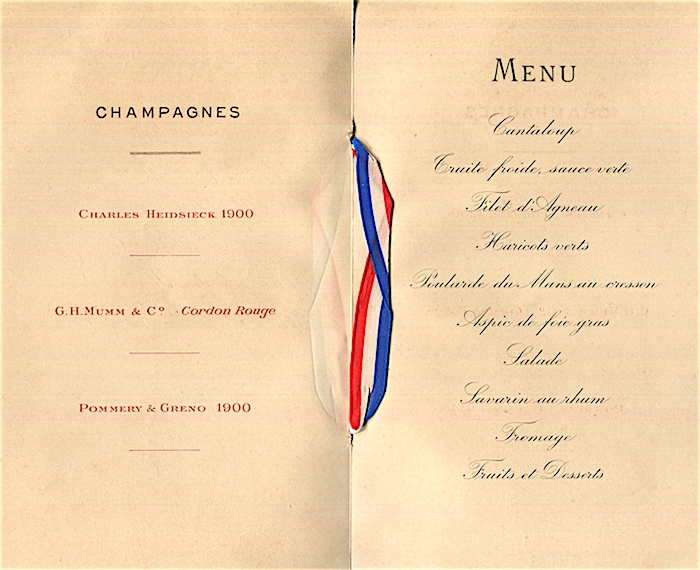 CHAMPAGNES
CHARLES HEIDSIECK 1900
G.H. MUMM & Cº Cordon Rouge
POMMERY & GRENO 1900
MENU
Cantaloup
Truite froide, sauce verte
Filet d'Agneau
Haricots verts
Poularde du Mans au cresson
Aspic de foie gras
Salade
Savarin au rhum
Fromage
Fruits et Desserts